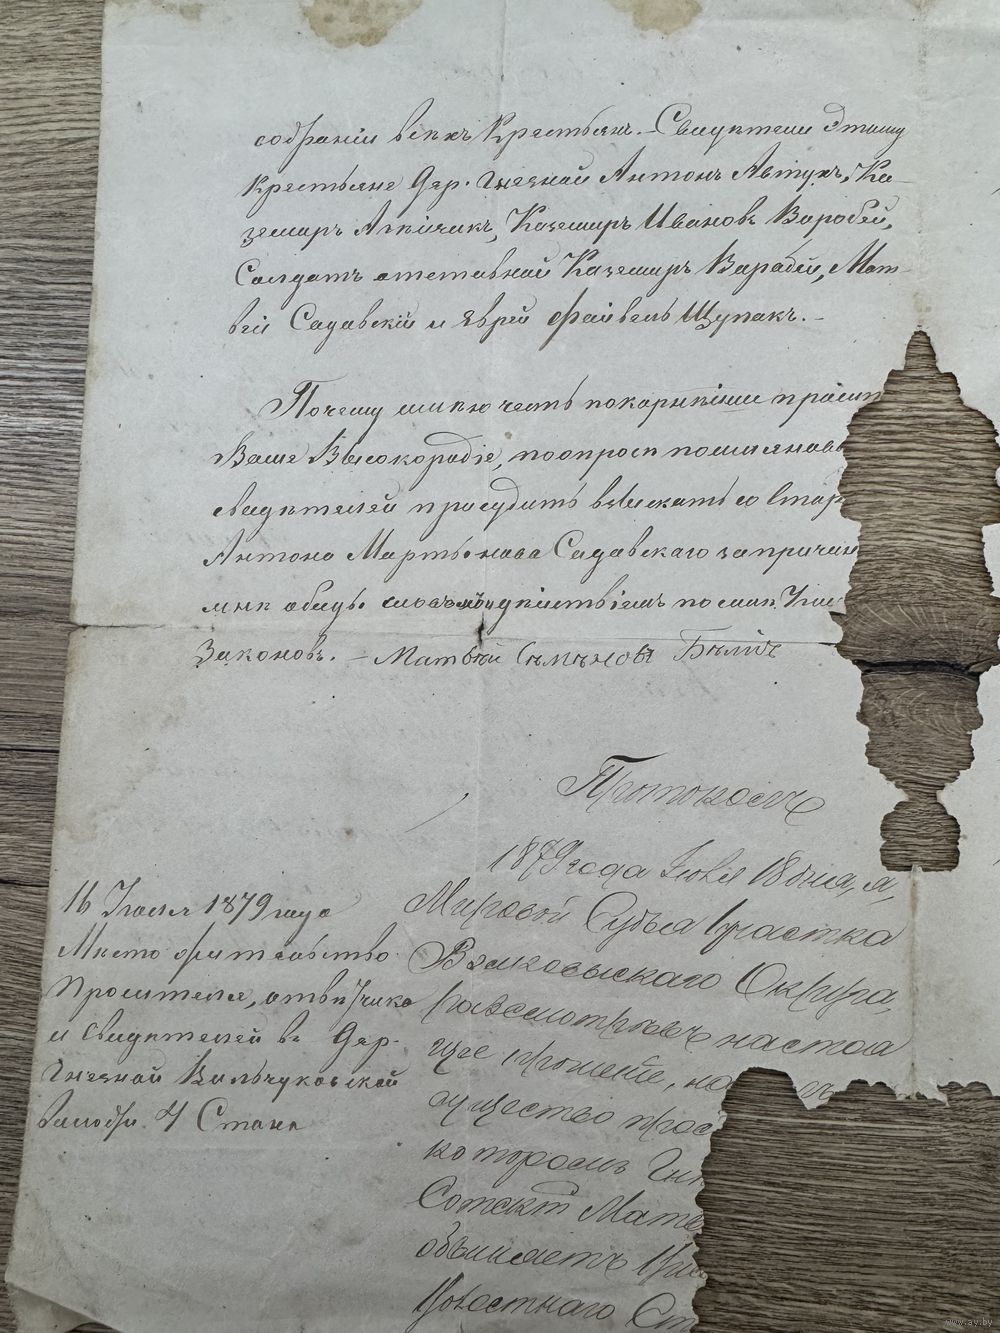 собраніи всѣхъ Крестьянъ. – Свидѣтели этому
крестьяне Дер. Гнезной Антонъ Автухъ, Ка-
земиръ Казимиръ Ивановъ Воробей,
Солдатъ отставной Каземиръ Варабей, Мат-
вей Садавскій и Яврей Файвель Щупакъ. –
Почему имѣю честь покорнѣйше просит
Ваше Высокородіе, поопросѣ поимянов
свидѣтелей присудить взыскать со Стар
Антона Мартьянова Садавскаго за причин
мнѣ обиды словъ дѣйствіемъ по сил.
Законовъ. – Матвѣй Сѣмѣновъ Бѣлій
Протоколъ
1879 года Іюля 18 дня, я,
Мировой Судья 1 участка
Волковыскаго Округа,
разсмотрѣвъ настоя
щее прошеніе,
существо прос
которомъ Гн
Сотскій Матв
обвиняетъ
Ст
16 Іюля 1879 года
Мѣсто жительство
Просителя, отвѣтчика
и свидѣтелей въ Дер.
Гнезной Вильчуковской
волости 4 Стана
www.ay.by